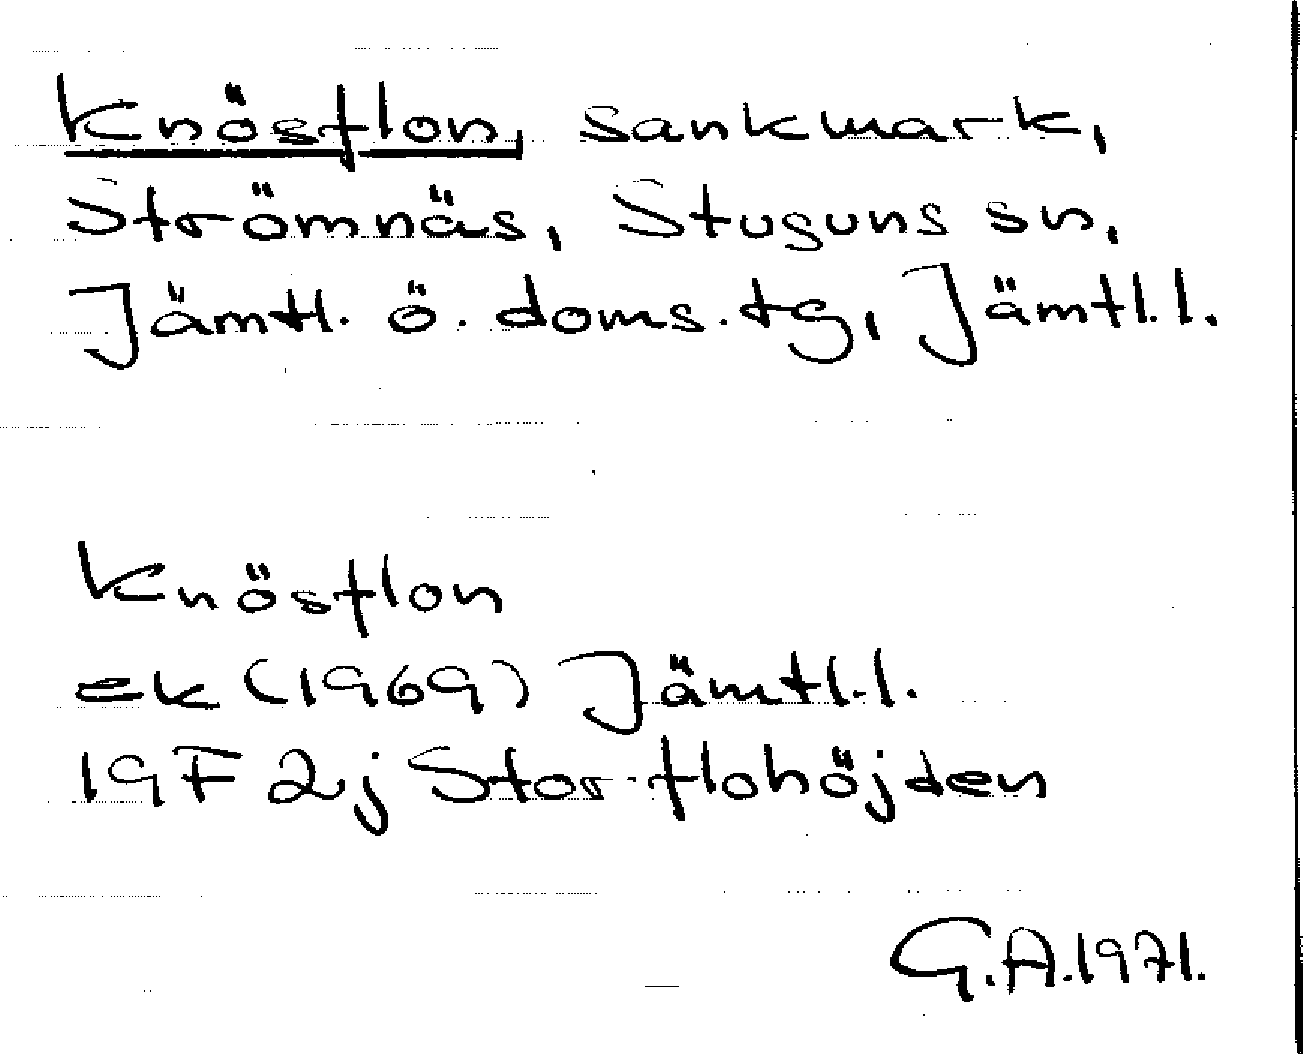 Knösflon, sankmark,
Strömnäs, Stuguns sn,
Jämtl. ö. doms.tg, Jämtl.l.
Knösflon
ek (1969) Jämtl.l.
19F 2j Stor-flohöjden
G.A.1971.